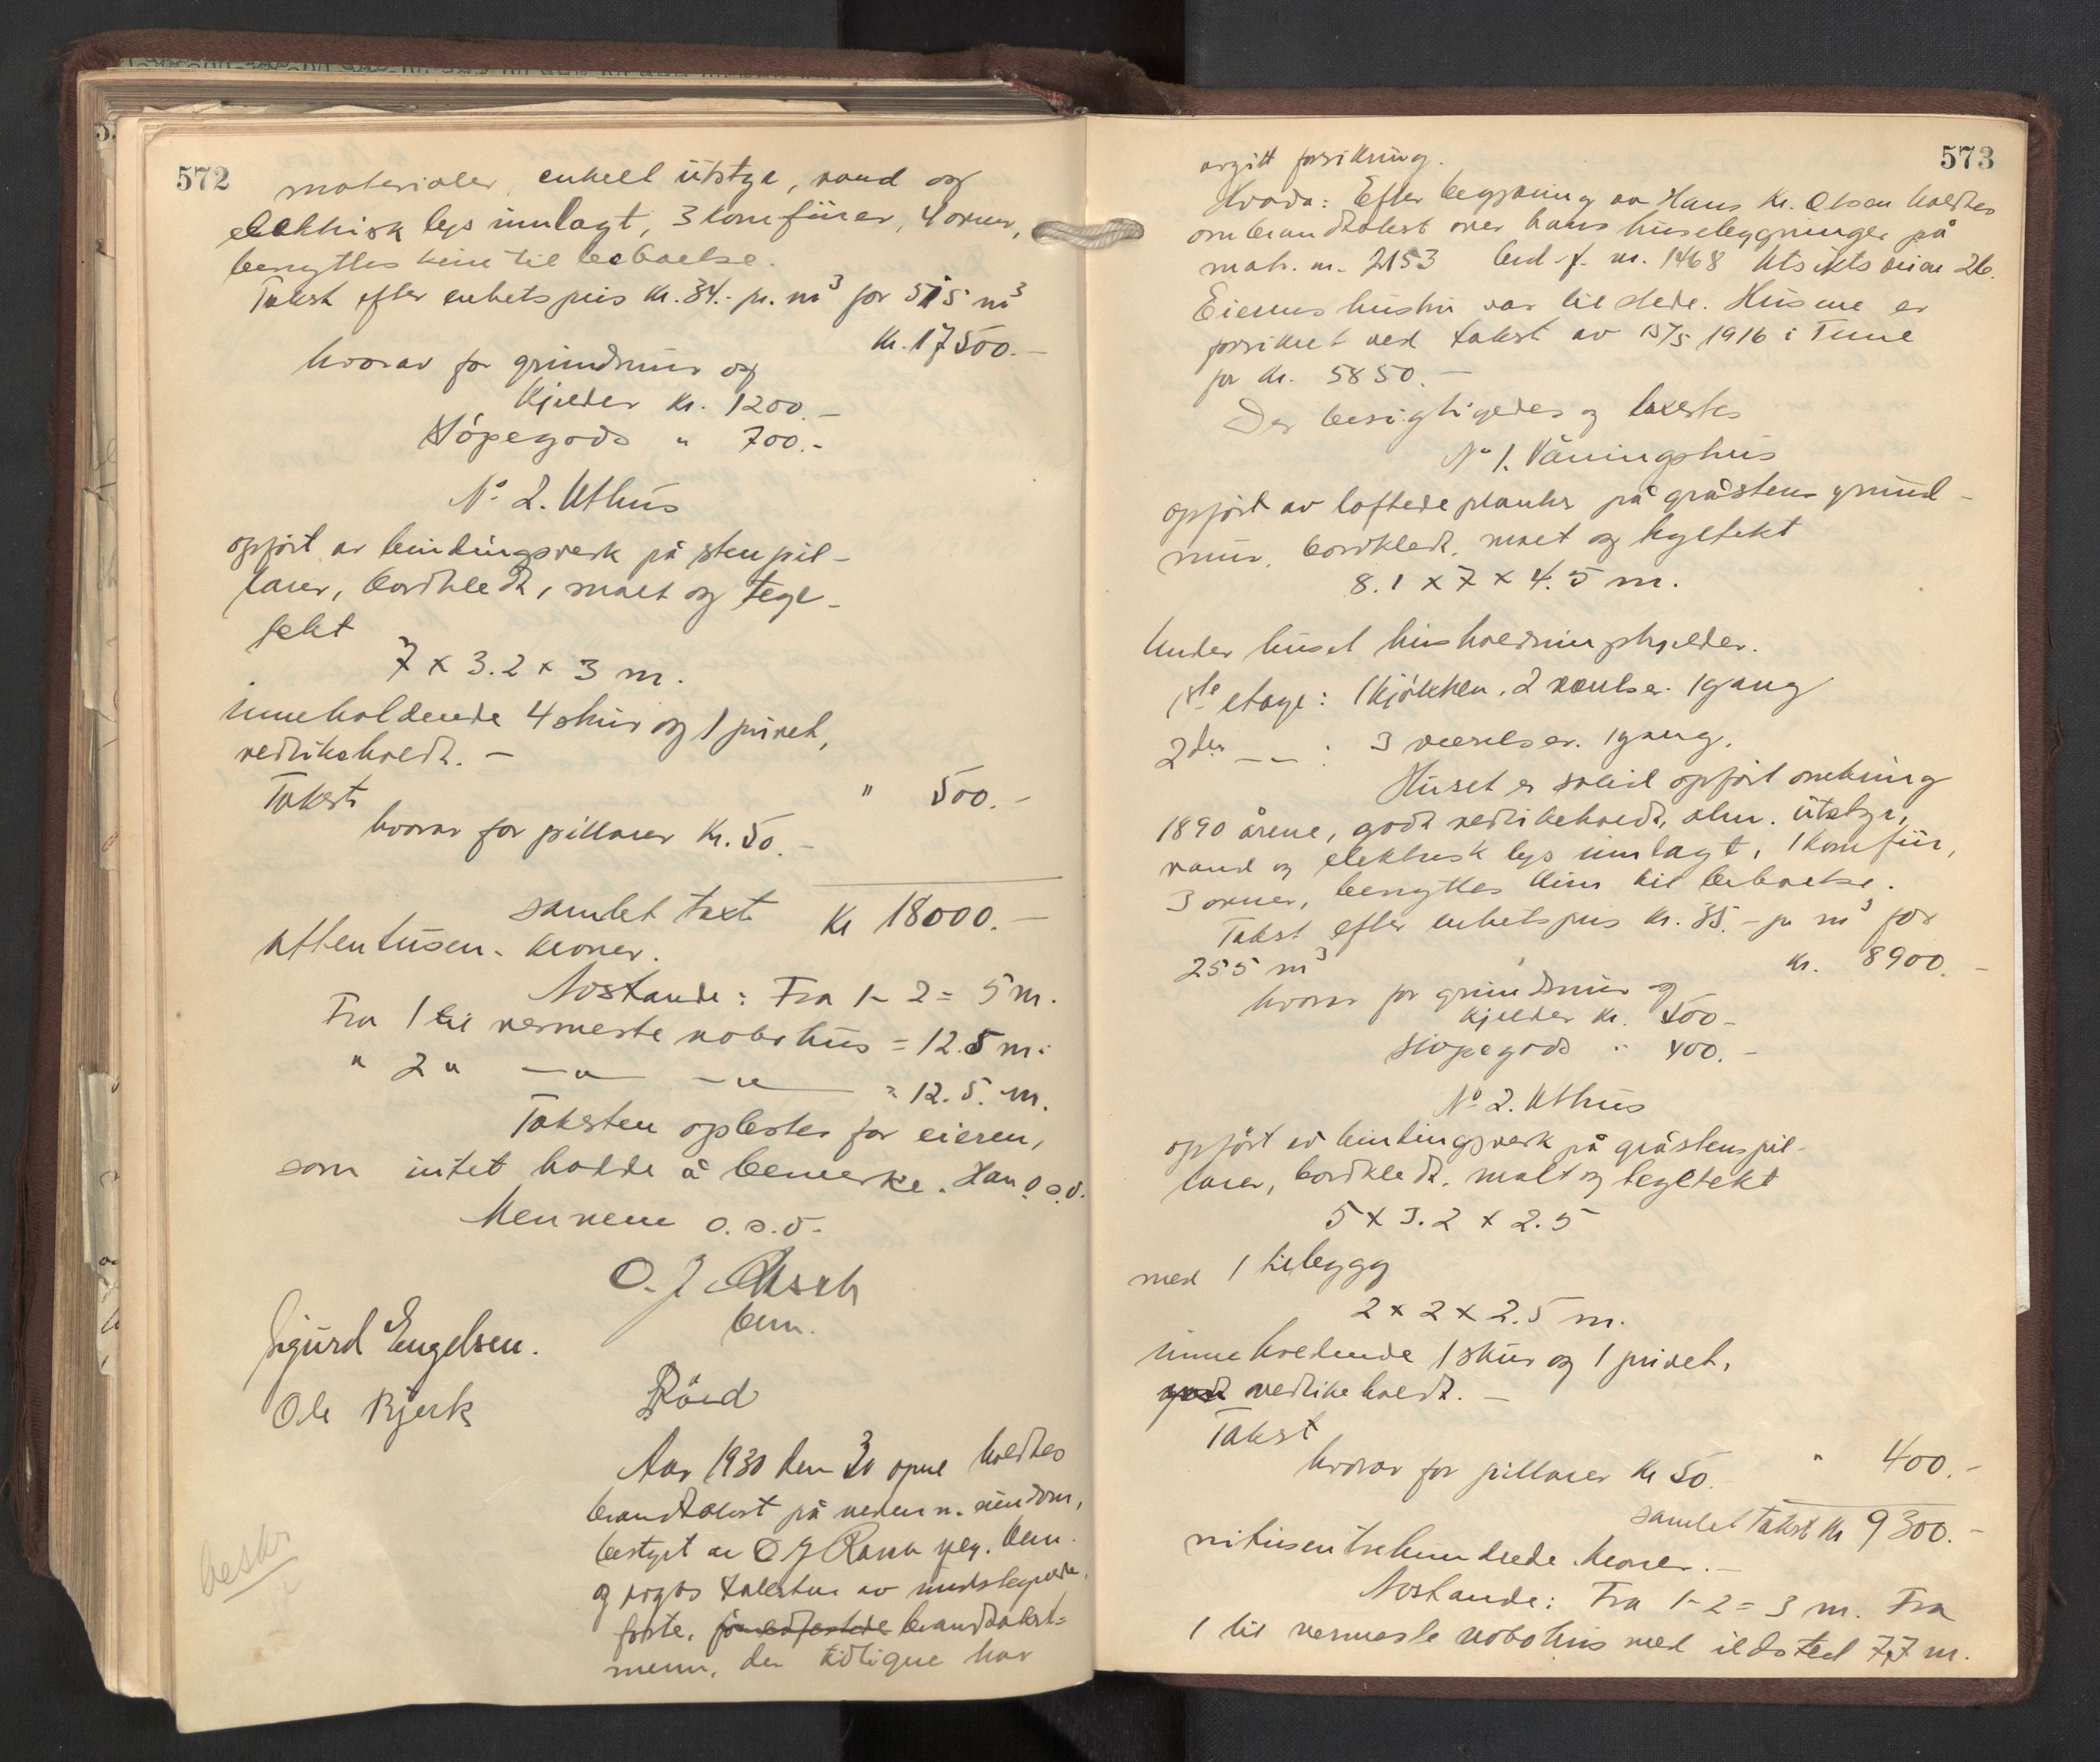 572
materialer, enkelt utstyr, vand og
elektrisk lys innlagt, 3 komfürer, 4 ovner,
benyttes kün til beboelse.
Takst efter enhetspris kr. 34.- pr. m³ for 515 m³
kr. 17500.-
hvorav for grundmür og
kjelder kr. 1200.-
Støpegods " 700.-
No 2. Uthus
opført av bindingsverk på stenpil-
larer, bordkledt, malt og tegl-
tekt
7 x 3.2 x 3 m.
inneholdende 4 skür og 1 privet,
vedlikeholdt. -
Takst " 500.-
hvorav for pillarer kr. 50.-
samlet takst Kr 18000.-
atten tusen. kroner.
Avstande: Fra 1- 2 = 5 m.
Fra 1 til nermeste nabohüs = 12.5 m.
" 2 " -"- -"- = 12.5. m.
Taksten oplestes for eieren,
som intet hadde å bemerke. Han o.s.v.
Mennene o.s.v.
O. J.
bem.
Sigurd Engelsen.
Ole Bjerk
Röed
Aar 1930 den 30 april holdtes
brandtakst på nedenn. eiendom,
bestyrt av O J
og avgav taksten av undertegnede
faste, brandtakst-
menn, der tidligere har
beskr
573
avgitt forsikring.
Hvoda: Efter begjæring av Hans Kr. Olsen holdtes
ombrandtakst over hans hüsebygninger på
matr. nr. 2153 brd. f. nr. 1468 Utsiktsveien 26.
Eierens hustru var til stede. Hüsene er
forsikret ved takst av 15/5 1916 i Tune
for kr. 5850.-
Der besigtigedes og taxertes
No 1. Våningshüs
opført av loftede planker på gråstens grund-
mür, bordkledt, malt og tegltekt
8.1 x 7 x 4.5 m.
Under huset hüsholdningskjelder.
1ste etage: 1 kjøkken. 2 værelser. 1 gang
2den -"- : 3 værelser. 1 gang.
Hüset er solid opført omkring
1890 årene, godt vedlikeholdt, alm. ütstyr,
vand og elektrisk lys innlagt, 1 komfür,
3 ovner, benyttes kün til beboelse.
Takst efter enhetspris kr. 35.- pr m³ for
255 m³ kr. 8900.-
hvorav for grundmür og
kjelder kr. 500-
støpegods " 400.-
No 2. Uthüs
opført av bindingsverk på gråstenspil-
larer, bordkledt. malt og tegltekt
5 x 3.2 x 2.5
med 1 tilbygg
2 x 2 x 2.5 m.
inneholdende 1 skür og 1 privet,
godt vedlikeholdt. -
Takst
hvorav for pillarer kr 50. " 400.-
samlet takst kr 9300.-
nitusentrehundrede kroner.-
Avstande: Fra 1- 2 = 3 m. Fra
1 til nermeste nabohüs med ildsted 7,7 m.